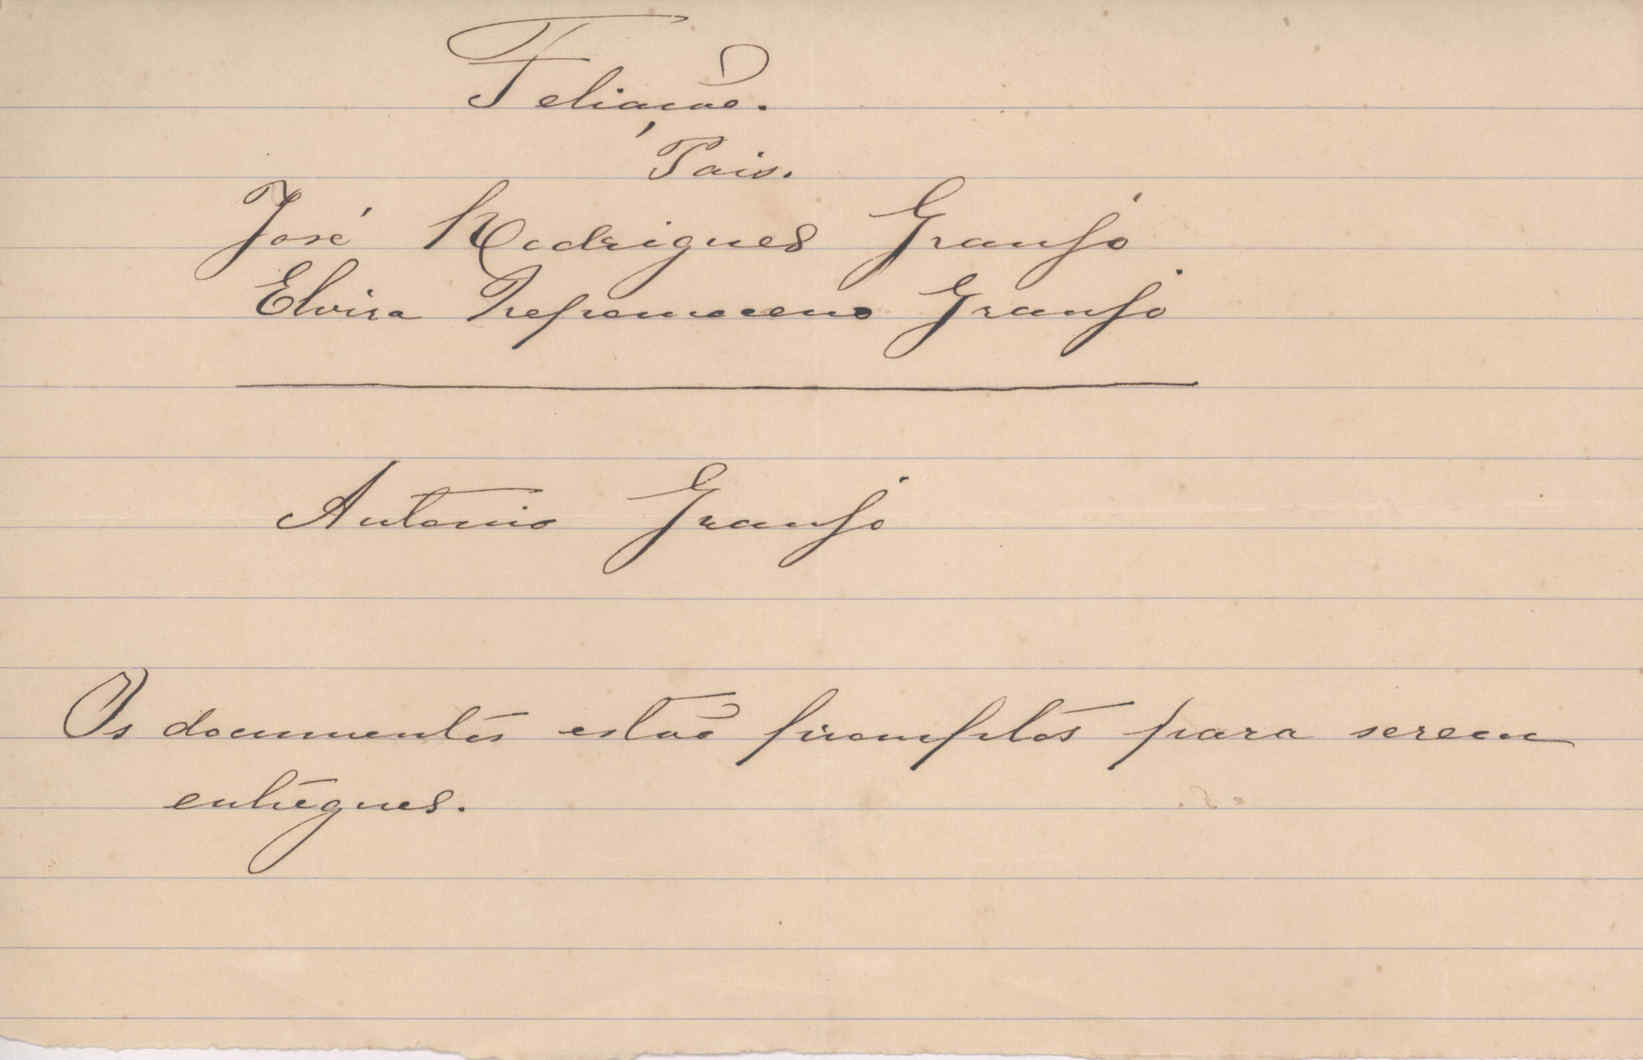 Feliação.
Pais.
José Rodrigues Granjo
Elvira Nepomoceno Granjo
Antonio Granjo
Os documentos estão promptos para serem
entregues.